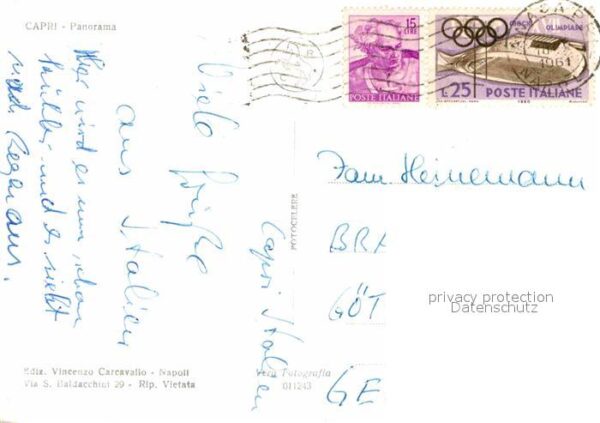 CAPRI - Panorama
Hier wird es nun schon
kühler und es sieht
nach Regen aus.
Viele Grüße
aus Italien
Capri Italien
Ediz. Vincenzo Carcavallo - Napoli
Via S. Baldacchini 29 - Rip. Vietata
Vera Fotografia
011243
FOTOCELERE
15
LIRE
POSTE ITALIANE
GIOCHI OLIMPIADE
L.25 POSTE ITALIANE
1960
1961
Fam. Heinemann
BRA
GÖT
GE
privacy protection
Datenschutz